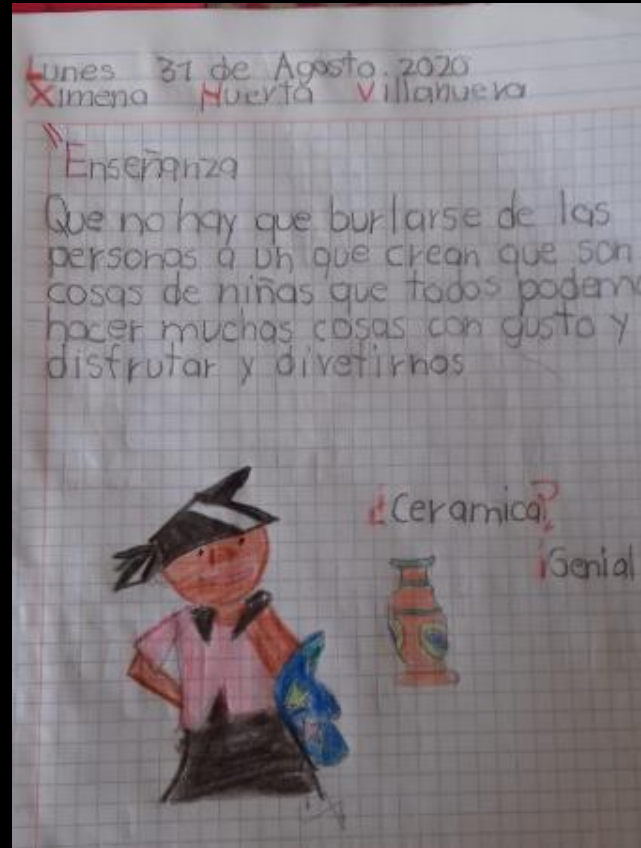 Lunes 31 de Agosto. 2020
Ximena Huerta Villanueva
"Enseñanza
Que no hay que burlarse de las
personas a un que crean que son
cosas de niñas que todos podemo
hacer muchas cosas con gusto y
disfrutar y divetirnos
¿Ceramica?
¡Genial